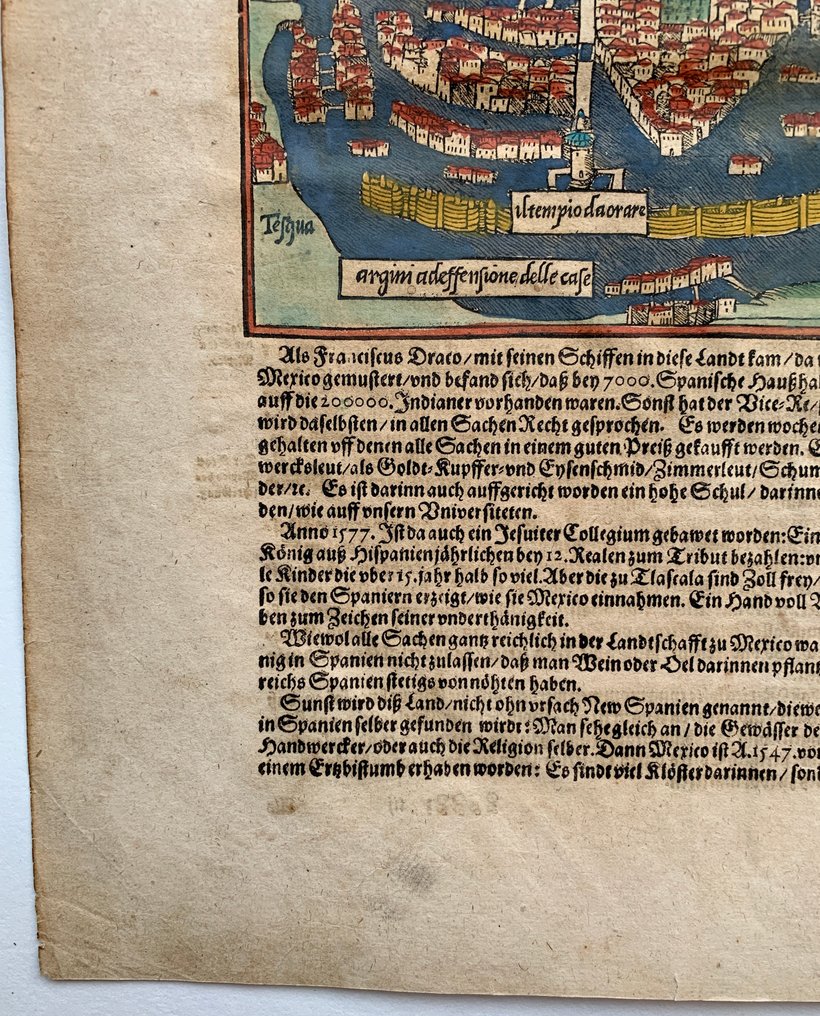 il tempio da orare
Tesqua
argini a deffensione delle case
Als Franciscus Draco/mit seinen Schiffen in diese Landt kam/da
Mexico gemustert/vnd befand sich/daß bey 7000. Spanische Haußha
auff die 200000. Indianer vorhanden waren. Sonst hat der Vice-Re/
wird daselbsten/in allen Sachen Recht gesprochen. Es werden woche
gehalten vff denen alle Sachen in einem guten Preiß gekaufft werden.
wercksleut/als Goldt-Kupffer-vnd Eysenschmid/Zimmerleut/Schum
der/ꝛc. Es ist darinn auch auffgericht worden ein hohe Schul/darinne
den/wie auff vnsern Vniversiteten.
Anno 1577. Ist da auch ein Jesuiter Collegium gebawet worden: Ein
König auß Hispanien jährlichen bey 12. Realen zum Tribut bezahlen:
le Kinder die vber 15. jahr halb so viel. Aber die zu Tlascala sind Zoll frey/
so sie den Spaniern erzeigt/wie sie Mexico einnahmen. Ein Hand voll
ben zum Zeichen seiner vnderthänigkeit.
Wiewol alle Sachen gantz reichlich in der Landtschafft zu Mexico wa
nig in Spanien nicht zulassen/daß man Wein oder Oel darinnen pflant
reichs Spanien stetigs von nöhten haben.
Sunst wird diß Land/nicht ohn vrsach New Spanien genannt/diewe
in Spanien selber gefunden wirdt: Man sehe gleich an/die Gewässer de
Handwercker/oder auch die Religion selber. Dann Mexico ist A. 1547. vor
einem Ertzbistumb erhaben worden: Es sindt viel Klöster darinnen/son